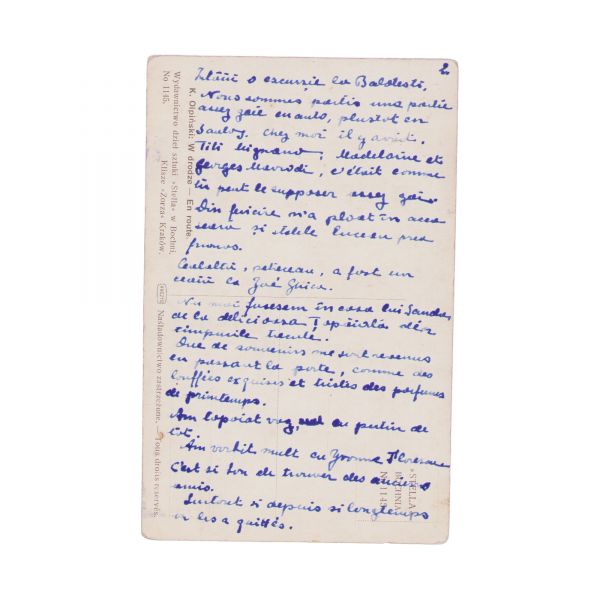 2.
o excursie la Baldesti,
Nous sommes partis une partie
assez gaie en auto, plustot en
chez moi il y avait
Titi Mignano, Madelaine et
Georges Mavrodi, c'était comme
tu peut le supposer assez gai.
Din fericire n'a plouat în acea
seară și stelele luceau prea
frumos.
Cealaltă, petrecere, a fost un
ceaiu la Zoé Ghica.
Nu mai fusesem în casa lui Sandu
de la delicioasa
timpurile trecute.
Que de souvenirs me sont revenus
en passant la porte, comme des
bouffées exquises et tristes des parfums
de printemps.
Am lopoiat cu putin de
tot.
Am vorbit mult cu Yvonne Floresau
C'est si bon de trouver des anciens
amis.
Surtout si depuis si longtemps
on les a quittés.
K. Olpiński: W drodze — En route
Wydawnictwo dzieł sztuki »Stella« w Bochni.
No 1145. Klisze »Zorza« Kraków.
Naśladownictwo zastrzeżone. — Tous droits reservés.
»STELLA«
BOCHNIA
No 1145